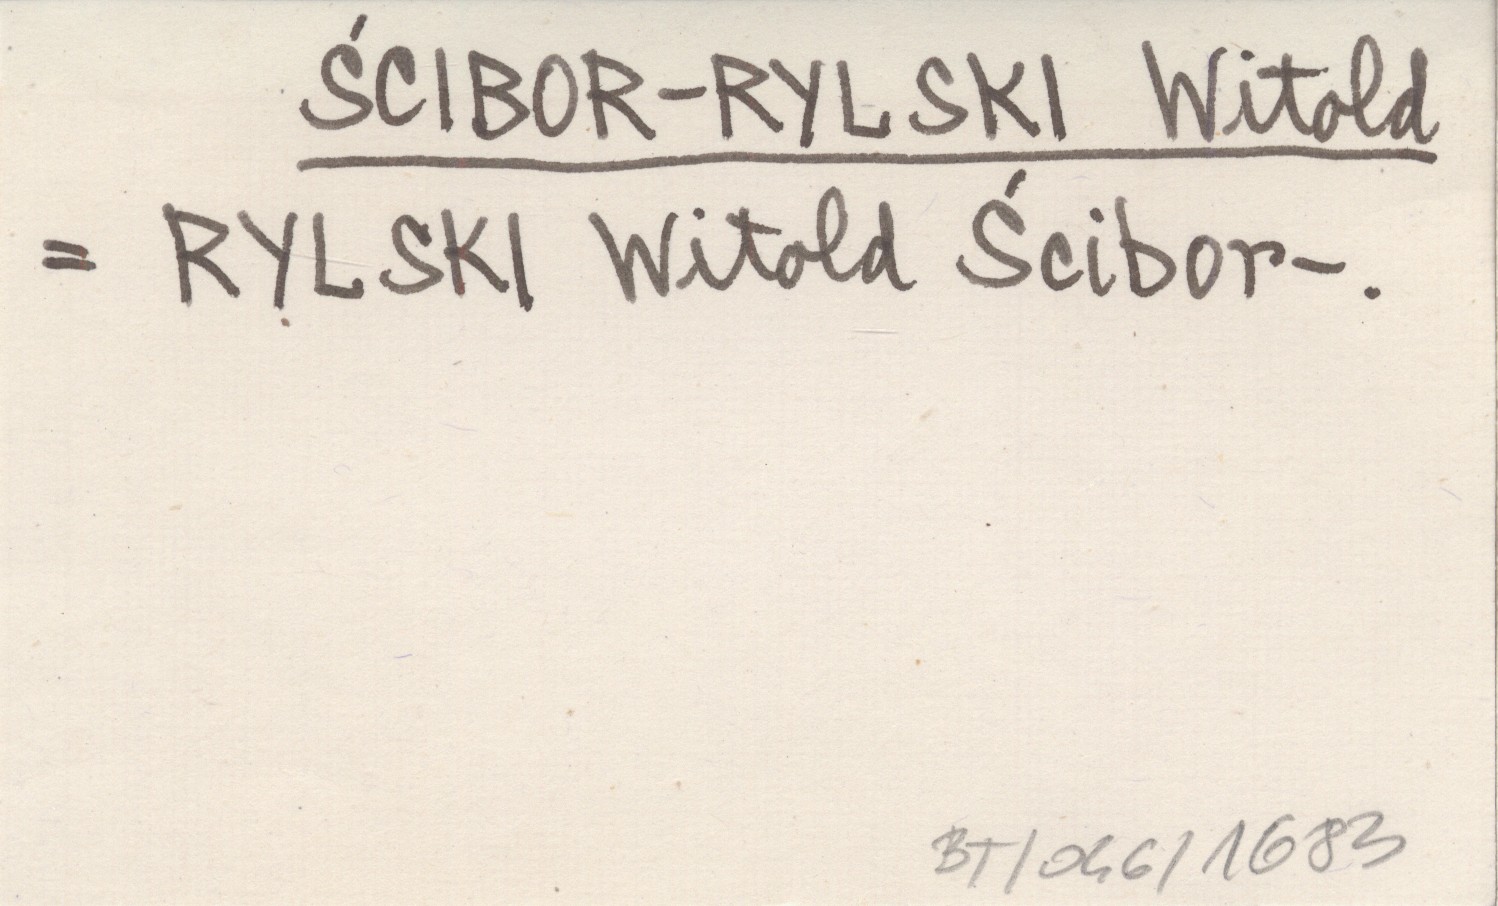 ŚCIBOR-RYLSKI Witold
= RYLSKI Witold Ścibor-.
BT/046/1683